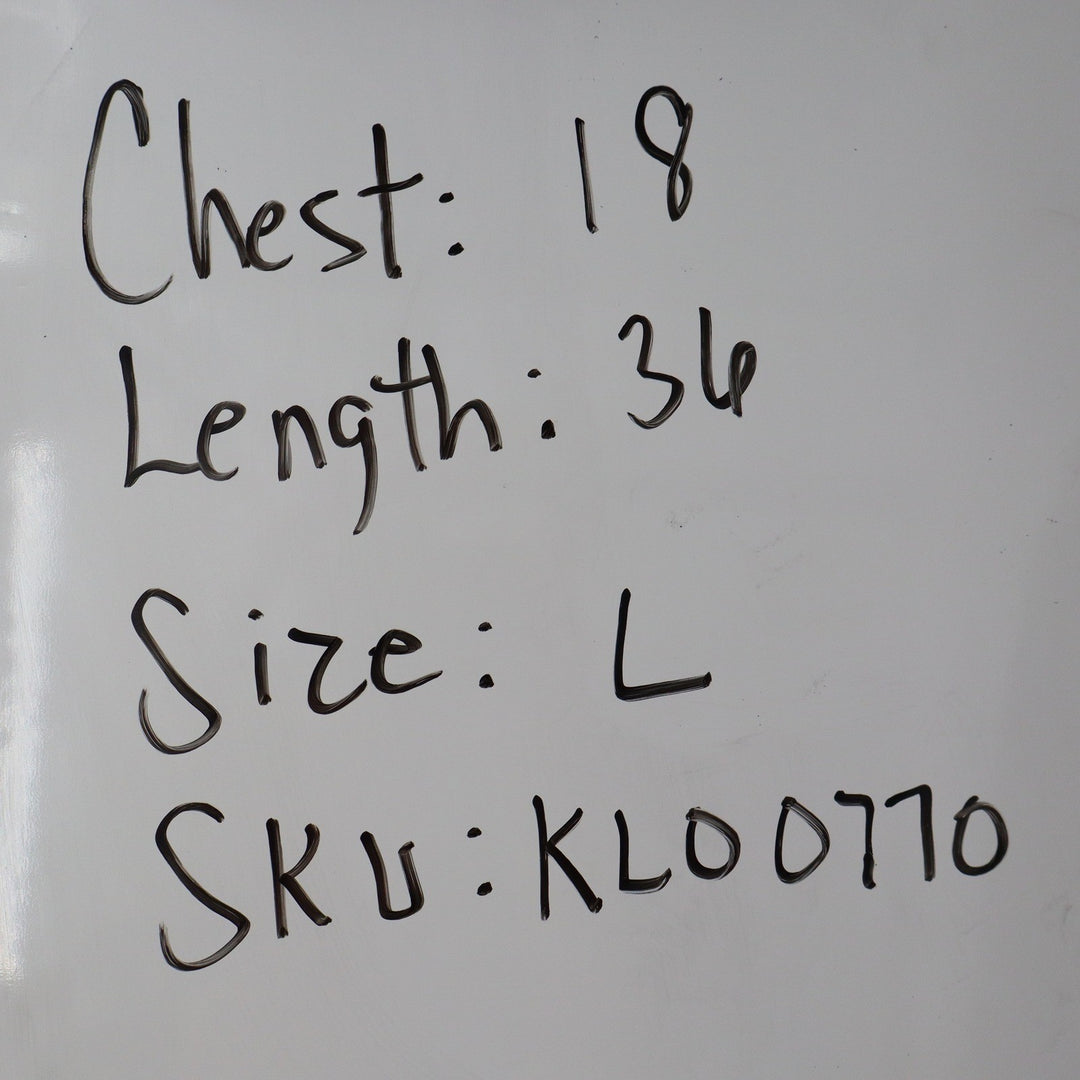 Chest: 18
Length: 36
Size: L
SKU: KL00770